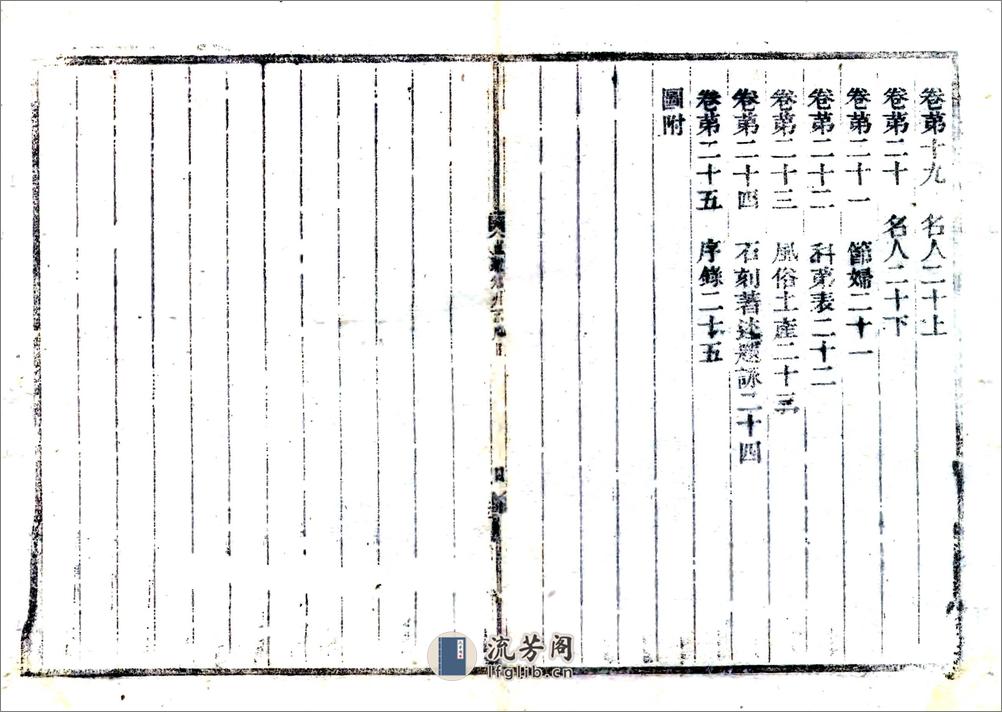 卷第十九　名人二十上
卷第二十　名人二十下
卷第二十一　節婦二十一
卷第二十二　科第表二十二
卷第二十三　風俗土產二十三
卷第二十四　石刻著述題詠二十四
卷第二十五　序錄二十五
圖附
流芳阁
lfglib.cn